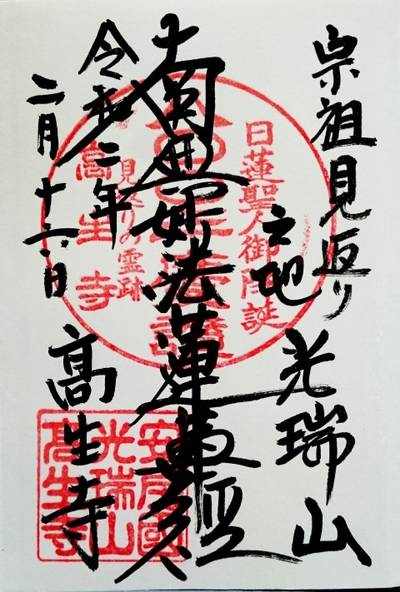 宗祖見返り
之地
光瑞山
南無妙法蓮華経
令和二年
二月十六日
高生寺
日蓮聖人御降誕
見返りの霊跡
高生寺
安房国
光瑞山
高生寺